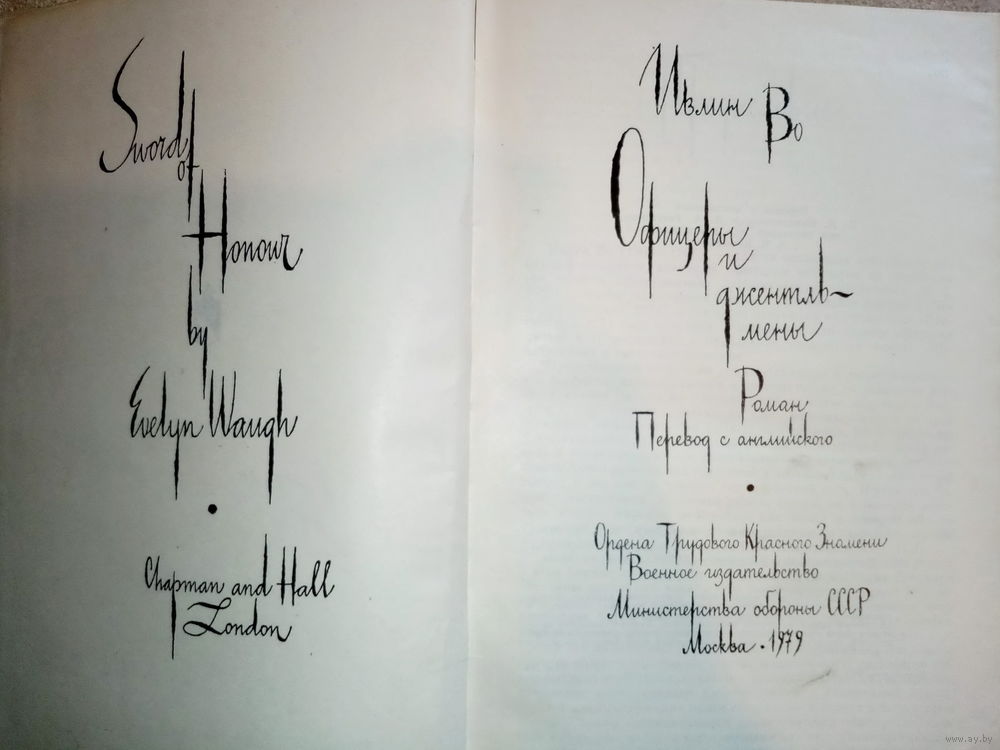 Sword
of
Honour
by
Evelyn Waugh
•
Chapman and Hall
London
Ивлин Во
Офицеры
и
джентль-
мены
Роман
Перевод с английского
•
Ордена Трудового Красного Знамени
Военное издательство
Министерства обороны СССР
Москва • 1979
www.ay.by